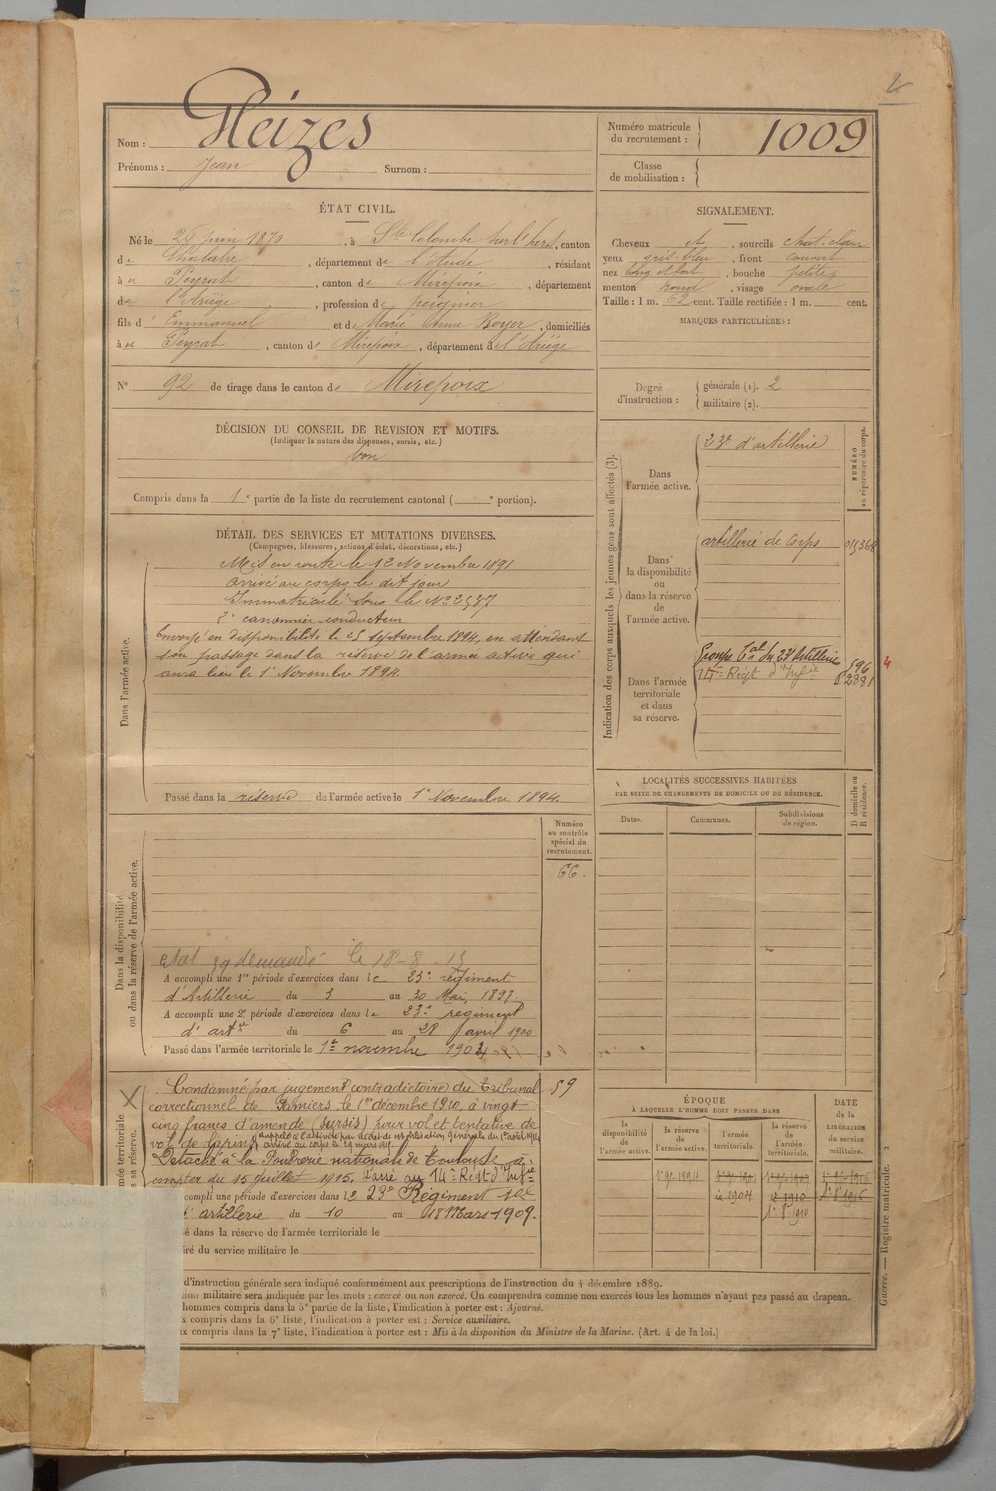 2
Nom : Pleizes
Prénoms : Jean Surnom :
Numéro matricule du recrutement : 1009
Classe de mobilisation :
ÉTAT CIVIL.
Né le juin 1870, à Ste Colombe sur l'hers, canton
de Chalabre, département de l'Aude, résidant
à Peyrat, canton de Mirepoix, département
de l'Ariège, profession de peignier
fils d'Emmanuel et de Marie Anne Boyer, domiciliés
à Peyrat, canton de Mirepoix, département de l'Ariège
N° 92 de tirage dans le canton de Mirepoix
SIGNALEMENT.
Cheveux et, sourcils chat. clair
yeux gris-bleu, front couvert
nez long et fort, bouche petite
menton rond, visage ovale
Taille : 1 m. 62 cent. Taille rectifiée : 1 m. cent.
MARQUES PARTICULIÈRES :
Degré d'instruction : générale (1). 2
militaire (2).
DÉCISION DU CONSEIL DE REVISION ET MOTIFS.
(Indiquer la nature des dispenses, sursis, etc.)
bon
Compris dans la 1e partie de la liste du recrutement cantonal ( e portion).
DÉTAIL DES SERVICES ET MUTATIONS DIVERSES.
(Campagnes, blessures, actions d'éclat, décorations, etc.)
Dans l'armée active.
Mis en route le 12 Novembre 1891
arrivé au corps le dit jour
Immatriculé sous le No 2537
2e canonnier conducteur
Envoyé en disponibilité le 25 septembre 1894, en attendant
son passage dans la réserve de l'armée active qui
aura lieu le 1er Novembre 1894.
Passé dans la réserve de l'armée active le 1er Novembre 1894.
Indication des corps auxquels les jeunes gens sont affectés (3).
NUMÉRO au répertoire du corps.
Dans l'armée active.
23e d'artillerie
Dans la disponibilité ou dans la réserve de l'armée active.
artillerie de Corps
Dans l'armée territoriale et dans sa réserve.
Groupe tal du 23 Artillerie 596
14e Régt d'Infie 2881
LOCALITÉS SUCCESSIVES HABITÉES
PAR SUITE DE CHANGEMENTS DE DOMICILE OU DE RÉSIDENCE.
Dates. Communes. Subdivisions de région.
D domicile ou R résidence.
Numéro au contrôle spécial du recrutement.
66.
Dans la disponibilité ou dans la réserve de l'armée active.
demandé le 18-8-15
A accompli une 1re période d'exercices dans le 23e régiment
d'Artillerie du 3 au 30 Mai, 1897.
A accompli une 2e période d'exercices dans le 23e régiment
d'artie du 6 au avril 1900
Passé dans l'armée territoriale le 1er novembre 1904
59
Condamné par jugement contradictoire du tribunal
correctionnel de Pamiers le 1er décembre 1910, à vingt-
cinq francs d'amende (sursis) pour vol et tentative de
vol de lapins. Rappelé à l'activité par décret de mobilisation générale du 1er août 1914
arrivé au corps le mars
Détaché à la Poudrerie nationale de Toulouse à
compter du 15 juillet 1915. Passé au 14e Régt d'Infie
compli une période d'exercices dans le 23e Régiment
d'artillerie du 10 au 18 Mars 1909.
é dans la réserve de l'armée territoriale le
ré du service militaire le
ÉPOQUE
À LAQUELLE L'HOMME DOIT PASSER DANS
DATE de la LIBÉRATION du service militaire.
la disponibilité de l'armée active.
la réserve de l'armée active.
l'armée territoriale.
la réserve de l'armée territoriale.
d'instruction générale sera indiqué conformément aux prescriptions de l'instruction du 4 décembre 1889.
tion militaire sera indiquée par les mots : exercé ou non exercé. On comprendra comme non exercés tous les hommes n'ayant pas passé au drapeau.
hommes compris dans la 5e partie de la liste, l'indication à porter est : Ajourné.
x compris dans la 6e liste, l'indication à porter est : Service auxiliaire.
ux compris dans la 7e liste, l'indication à porter est : Mis à la disposition du Ministre de la Marine. (Art. 4 de la loi.)
Guerre. — Registre matricule. 2